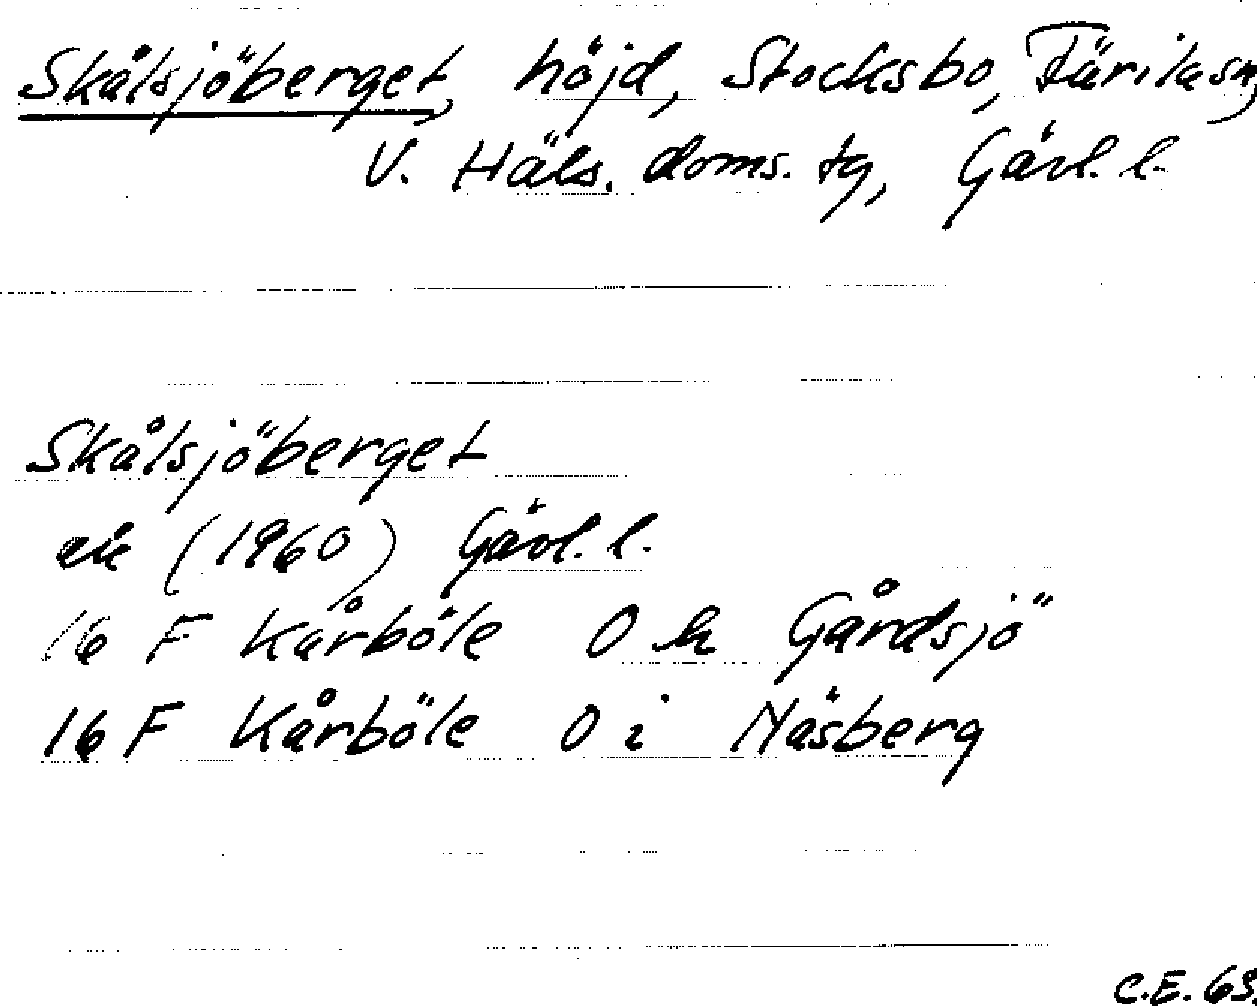 Skålsjöberget, höjd, Stocksbo, Färila sn,
V. Häls. doms. tg, Gävl. l.
Skålsjöberget
ek (1960) Gävl. l.
16 F Kårböle 0 h Gårdsjö
16 F Kårböle 0 i Näsberg
C.E. 69.